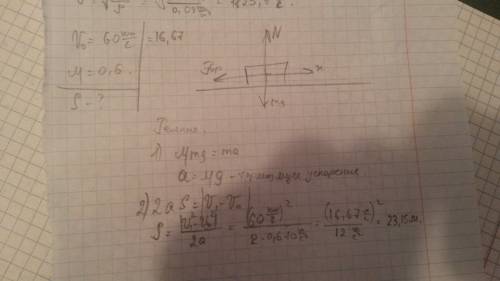 V₀ = 60 км/ч = 16,67
μ = 0,6.
S - ?
N
Fтр
x
mg
Решение.
1) μmg = ma
a = μg - тут ищем ускорение
2) 2aS = |V₁ - Vₙ|
S = |V₁² - V₀²| / 2a = (60 км/ч)² / 2·0,6·10 = (16,67)² / 12 = 23,15 м.